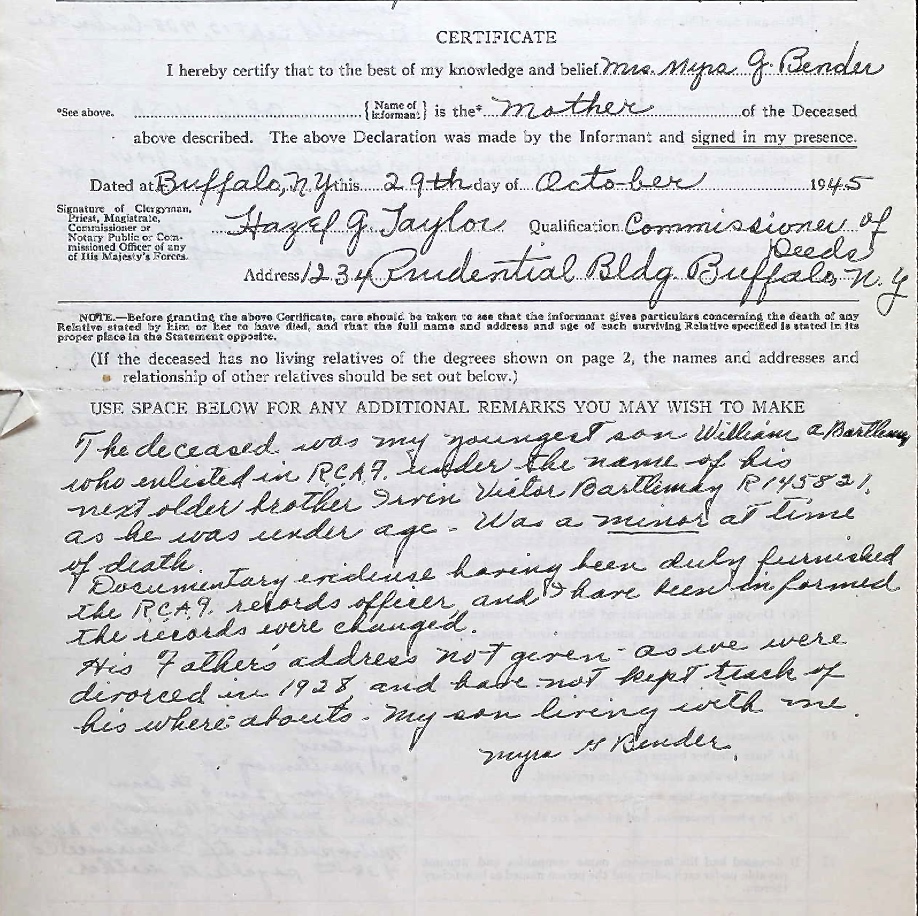 CERTIFICATE
I hereby certify that to the best of my knowledge and belief Mrs. Myra G Bender
*See above. {Name of Informant} is the* Mother of the Deceased
above described. The above Declaration was made by the Informant and signed in my presence.
Dated at Buffalo, N.Y this 29th day of October 1945
Signature of Clergyman, Priest, Magistrate, Commissioner or Notary Public or Commissioned Officer of any of His Majesty's Forces.
Hazel G. Taylor Qualification Commissioner of Deeds
Address 1234 Prudential Bldg Buffalo, N.Y
NOTE.—Before granting the above Certificate, care should be taken to see that the informant gives particulars concerning the death of any
Relative stated by him or her to have died, and that the full name and address and age of each surviving Relative specified is stated in its
proper place in the Statement opposite.
(If the deceased has no living relatives of the degrees shown on page 2, the names and addresses and
relationship of other relatives should be set out below.)
USE SPACE BELOW FOR ANY ADDITIONAL REMARKS YOU MAY WISH TO MAKE
The deceased was my youngest son William A Bartlemay
who enlisted in R.C.A.F. under the name of his
next older brother Irvin Victor Bartlemay R145821,
as he was under age - Was a minor at time
of death.
Documentary evidense having been duly furnished
the R.C.A.F. records officer, and I have been informed
the records were changed.
His Father's address not given - as we were
divorced in 1928, and have not kept track of
his where-abouts - My son living with me.
Myra G Bender.